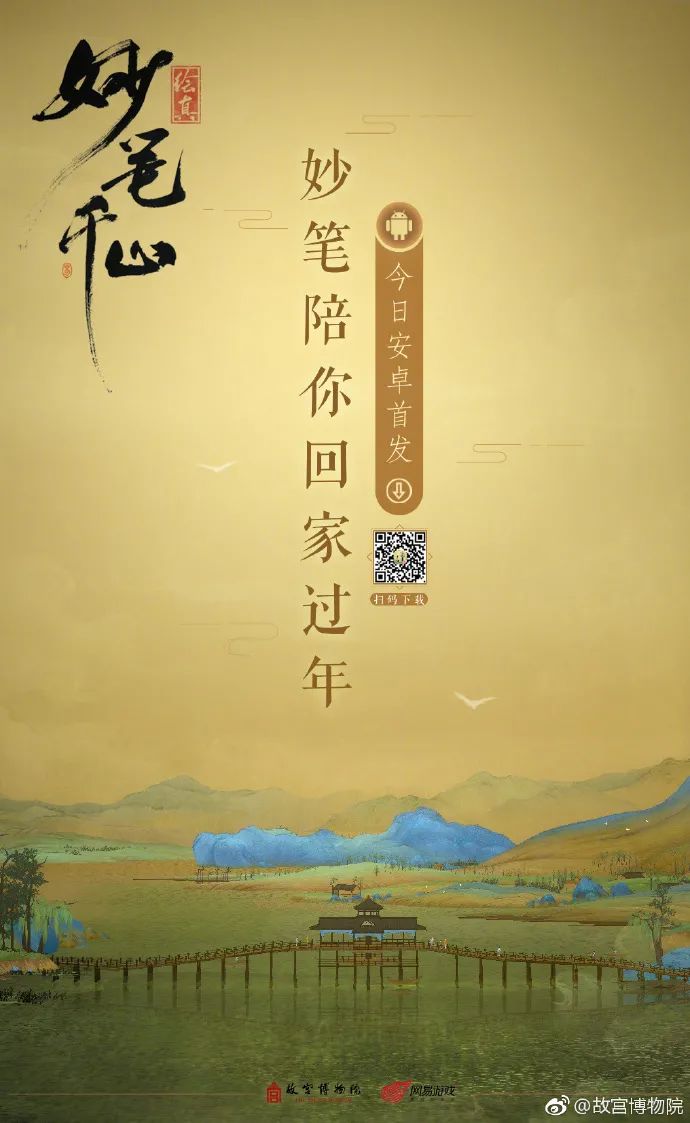 绘真
妙笔千山
妙笔陪你回家过年
今日安卓首发
扫码下载
故宫博物院
网易游戏
@故宫博物院